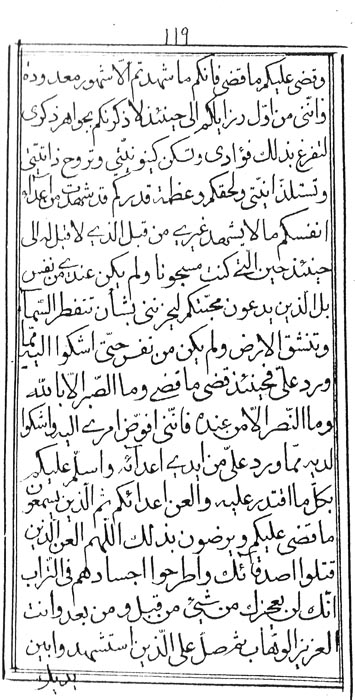 ١١٩
وقضى عليكم ما قضى فانكم ما شهدتم الا شهور معدودة
وانّنى من اوّل رزاياكم الى حينئذ لاذكرنكم بجواهر ذكرى
لتفرغ بذلك فؤادى وتسكن كينونيّتى وتروح ذاتيّتى
وتستلذ انيّتى ولحقكم وعظمة قدركم قد شهدت من اعداء
انفسكم ما لا يشهد غيرى من قبل الذى لا قبل له الى
حينئذ حين الذى كنت مسجونا ولم يكن عندى من نفس
بل الذين يدعون محبّتكم ليحزننى بشأن تنفطر السّماء
وتنشق الارض ولم يكن من نفس حتّى اشكوا اليه ممّا
ورد علىّ فحينئذ قضى ما قضى وما الصّبر الّا بالله
وما النّصر الّا من عنده فانّنى افوّض امرى اليه واشكوا
لديه ممّا ورد علىّ من ايدى اعدائه واسلّم عليكم
بكلّ ما اقتدر عليه والعن اعدائكم ثمّ الّذين يسمعون
ما قضى عليكم ويرضون بذلك اللهم العن الّذين
قتلوا اصدقائك واطرحوا اجسادهم فى التراب
انّك لن يعجزك من شىء من قبل ومن بعد وانت
العزيز الوهّاب ثمّ صلّ على الّذين استشهدوا بين
يديك